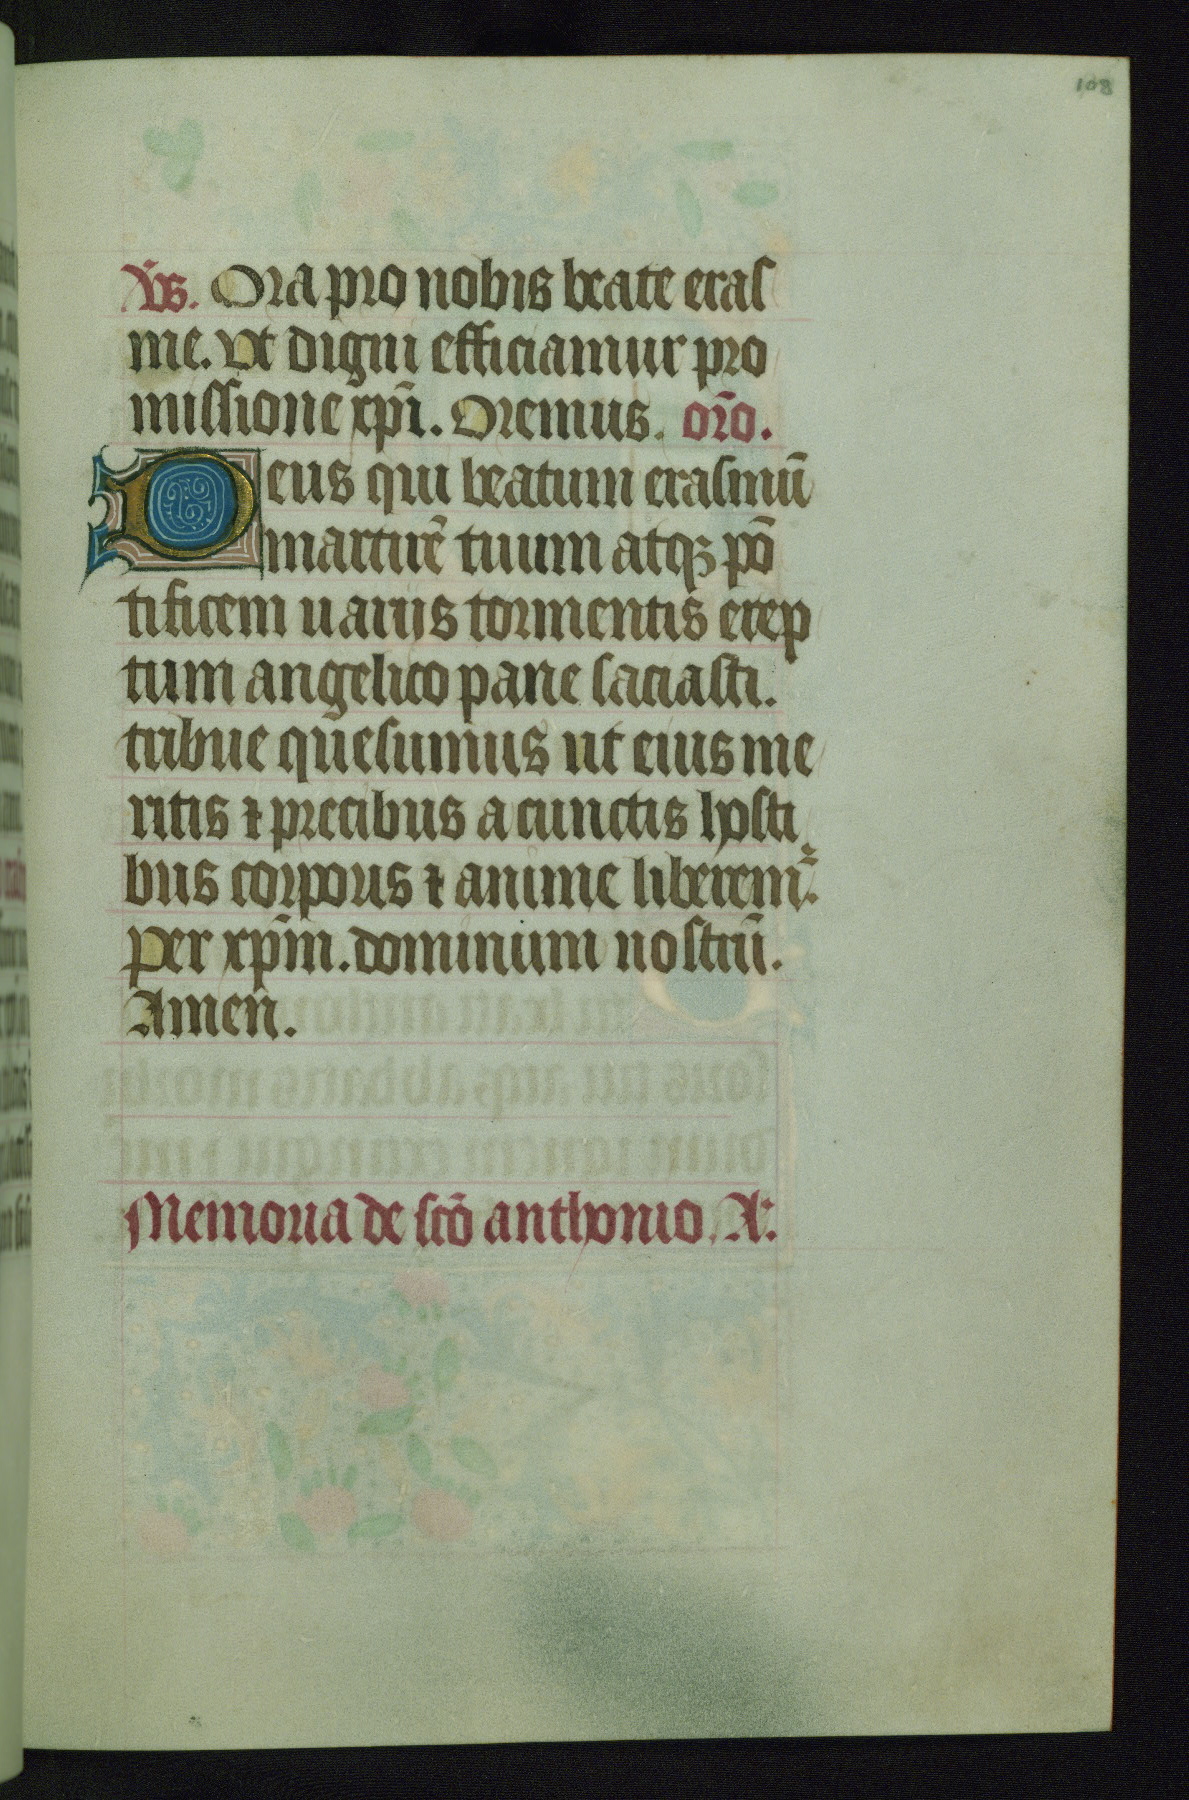 108
v̄s. Ora pro nobis beate eras
me. vt digni efficiamur pro
missione xp̄i. Oremus. or̄o.
Deus qui beatum erasmū
martirē tuum atqꝫ pō
tificem uarijs tormentis erep
tum angelico pane saciasti.
tribue quesumus ut eius me
ritis ⁊ precibus a cunctis hosti
bus corporis ⁊ anime liberem᷒.
Per xp̄m. dominum nostrū.
Amen̄.
Memoria de scō anthonio. A: